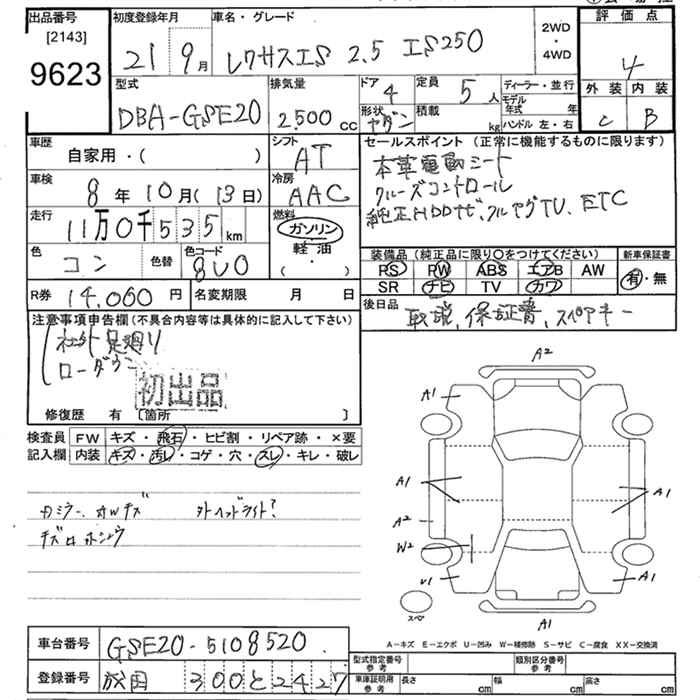 出品番号 初度登録年月 車名・グレード 評価点
[2143] 9623
21 9月 レクサスIS 2.5 IS250 2WD・4WD 4
型式 排気量 ドア 定員 ディーラー・並行 外装 内装
DBA-GSE20 2.500cc 4 5人 モデル年式 年 C B
形状 積載 kg ハンドル 左・右
車歴 シフト セールスポイント (正常に機能するものに限ります)
自家用・( ) AT 本革電動シート
車検 冷房 クルーズコントロール
8年10月(13日) AAC 純正HDDナビ、フルセグTV、ETC
走行 燃料
11万0千535km ガソリン・軽油・
色 色替 色コード 装備品 (純正品に限り○をつけてください) 新車保証書
コン 8U0 PS PW ABS エアB AW 有・無
R券 14.060円 名変期限 月 日 SR ナビ TV カワ
注意事項申告欄 (不具合内容等は具体的に記入して下さい) 後日品 取説、保証書、スペアキー
社外足廻り
ローダウン
初出品
修復歴 有 〔箇所 〕
検査員 FW キズ・飛石・ヒビ割・リペア跡・×要
記入欄 内装 キズ・汚レ・コゲ・穴・スレ・キレ・破レ
A2
A1
A1 A1
A2
W2
U1 A1
スペア
A1
A-キズ E-エクボ U-凹み W-補修跡 S-サビ C-腐食 XX-交換済
車台番号 GSE20-5108520
型式指定番号 参考 類別区分番号 参考
登録番号 300 と 2427
車庫証明用 参考 長さ cm 幅 cm 高さ cm